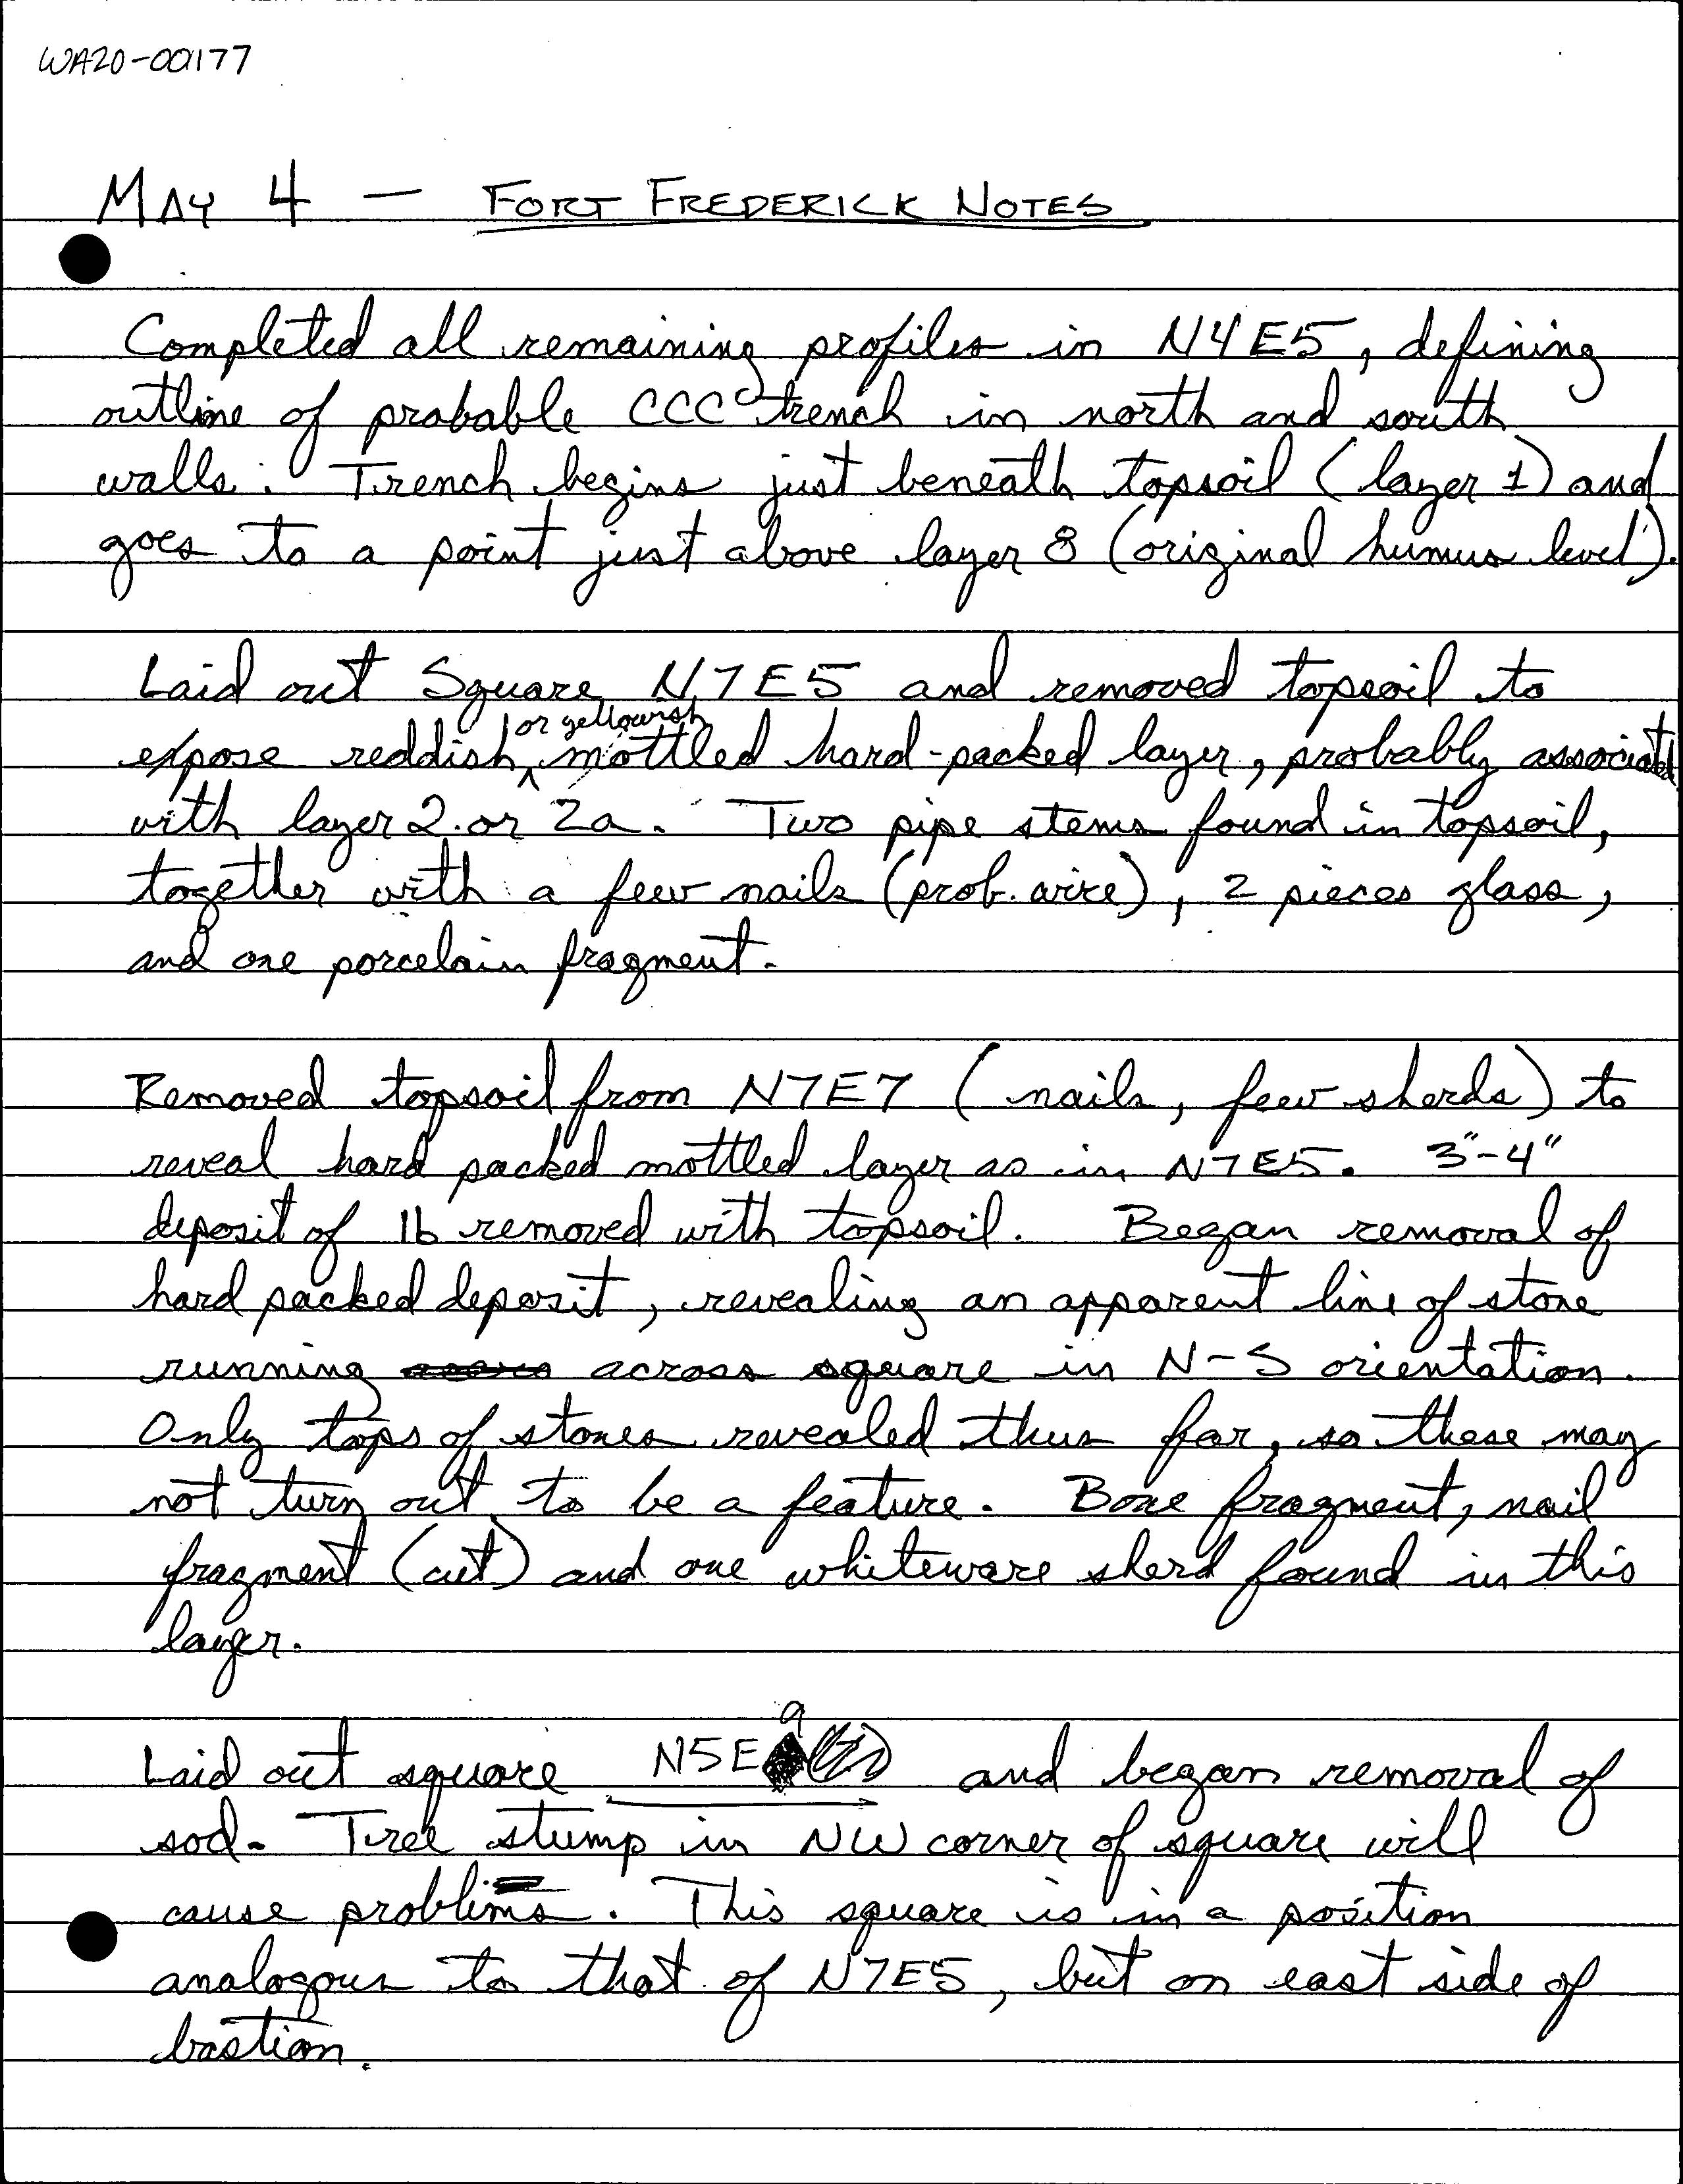 WA20-00177
MAY 4 — FORT FREDERICK NOTES
Completed all remaining profiles in N4E5, defining
outline of probable CCC trench in north and south
walls. Trench begins just beneath topsoil (layer 1) and
goes to a point just above layer 8 (original humus level).
Laid out Square N7E5 and removed topsoil to
or yellowish
expose reddish mottled hard-packed layer, probably associated
with layer 2 or 2a. Two pipe stems found in topsoil,
together with a few nails (prob. wire), 2 pieces glass,
and one porcelain fragment.
Removed topsoil from N7E7 (nails, few sherds) to
reveal hard packed mottled layer as in N7E5. 3"-4"
deposit of 1b removed with topsoil. Began removal of
hard packed deposit, revealing an apparent line of stone
running across square in N-S orientation.
Only tops of stones revealed thus far, so these may
not turn out to be a feature. Bone fragment, nail
fragment (cut) and one whiteware sherd found in this
layer.
Laid out square N5E9 and began removal of
sod. Tree stump in NW corner of square will
cause problems. This square is in a position
analogous to that of N7E5, but on east side of
bastion.